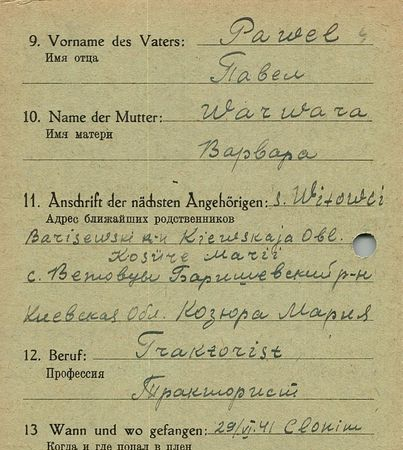 9. Vorname des Vaters: Pawel
Имя отца
Павел
10. Name der Mutter: Warwara
Имя матери
Варвара
11. Anschrift der nächsten Angehörigen: s. Witowci
Адрес ближайших родственников
Barisewski r-n Kiewskaja Obl.
Kosüre Marii
с. Ветовцы Баришевский р-н
Киевская Обл. Козюра Мария
12. Beruf: Traktorist
Профессия
Тракторист
13 Wann und wo gefangen: 29/VI.41 Slonim
Когда и где попал в плен